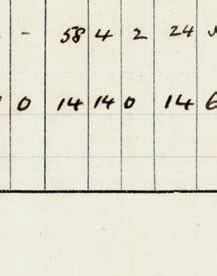 - 58 4 2 24
0 14 14 0 14 6